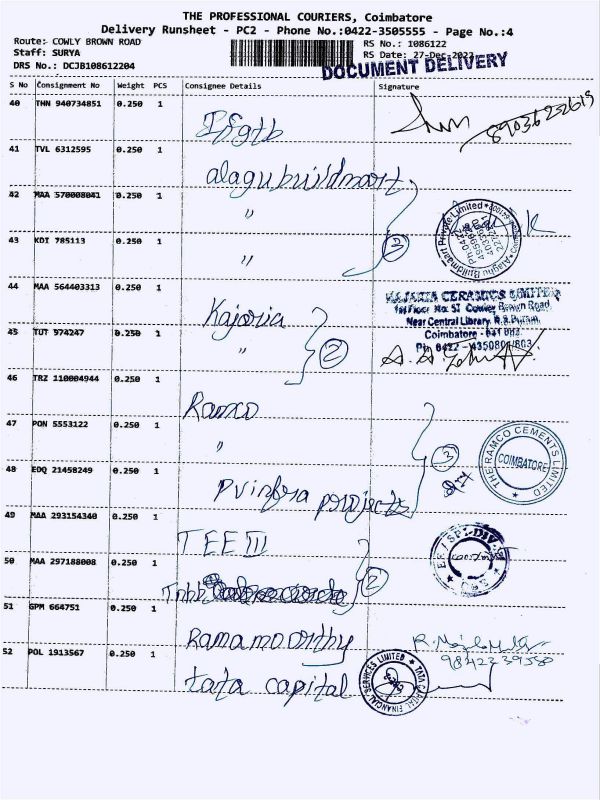 THE PROFESSIONAL COURIERS, Coimbatore
Delivery Runsheet - PC2 - Phone No.:0422-3505555 - Page No.:4
Route: COWLY BROWN ROAD
RS No.: 1086122
Staff: SURYA
RS Date: 27-Dec-2022
DRS No.: DCJB108612204
DOCUMENT DELIVERY
S No Consignment No Weight PCS Consignee Details Signature
40 THN 940734851 0.250 1
8903622619
41 TVL 6312595 0.250 1 alagu buildmart
42 MAA 570008041 0.250 1 "
43 KDI 785113 0.250 1 "
3
44 MAA 564403313 0.250 1 Kajaria
KAJARIA CERAMICS LIMITED
1st Floor No: 57 Cowley Brown Road
Near Central Library, R.S.Puram,
Coimbatore - 641 002.
Ph: 0422 - 4350801/803
45 TUT 974247 0.250 1 "
2
46 TRZ 110004944 0.250 1 Ramco
47 PON 5553122 0.250 1 "
3
THE RAMCO CEMENTS LIMITED
COIMBATORE
48 EDQ 21458249 0.250 1 pv infra projects
49 MAA 293154340 0.250 1 TEE III
50 MAA 297188008 0.250 1 Tnhb
2
51 GPM 664751 0.250 1 Ramamoorthy
9842239580
52 POL 1913567 0.250 1 tata capital
TATA CAPITAL FINANCIAL SERVICES LIMITED